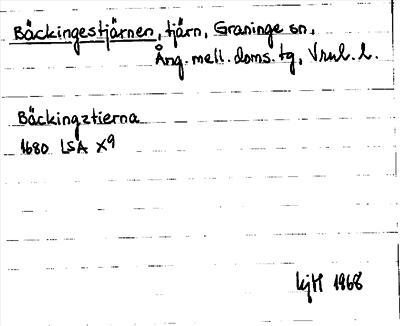 Bäckingestjärnen, tjärn, Graninge sn,
Ång. mell. doms. tg, Vrnl. l.
Bäckingztierna
1680 LSA X9
LjH 1968